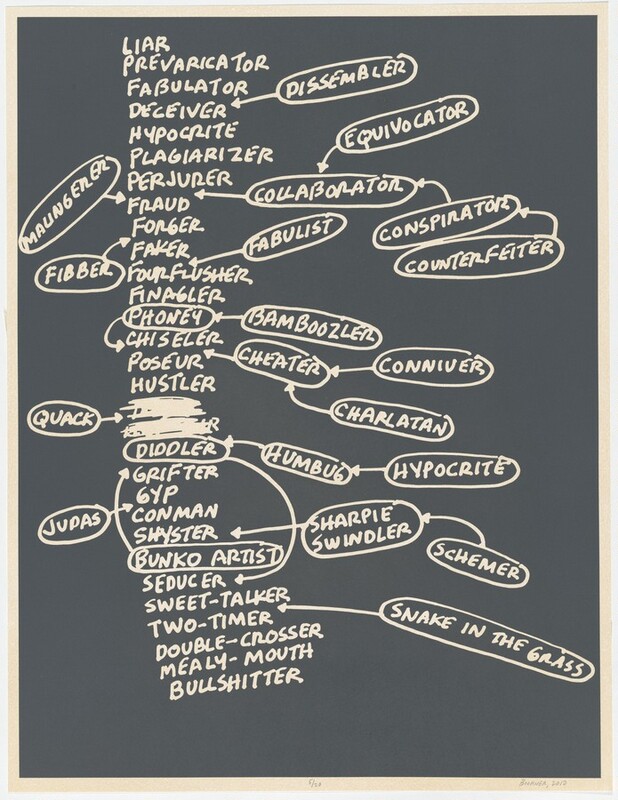 LIAR
PREVARICATOR
FABULATOR
DISSEMBLER
DECEIVER
EQUIVOCATOR
HYPOCRITE
PLAGIARIZER
PERJURER
COLLABORATOR
MALINGERER
FRAUD
CONSPIRATOR
FORGER
FABULIST
COUNTERFEITER
FAKER
FIBBER
FOURFLUSHER
FINAGLER
PHONEY
BAMBOOZLER
CHISELER
POSEUR
CHEATER
CONNIVER
HUSTLER
QUACK
CHARLATAN
DIDDLER
HUMBUG
HYPOCRITE
GRIFTER
GYP
JUDAS
CONMAN
SHARPIE
SWINDLER
SHYSTER
SCHEMER
BUNKO ARTIST
SEDUCER
SWEET-TALKER
TWO-TIMER
SNAKE IN THE GRASS
DOUBLE-CROSSER
MEALY-MOUTH
BULLSHITTER